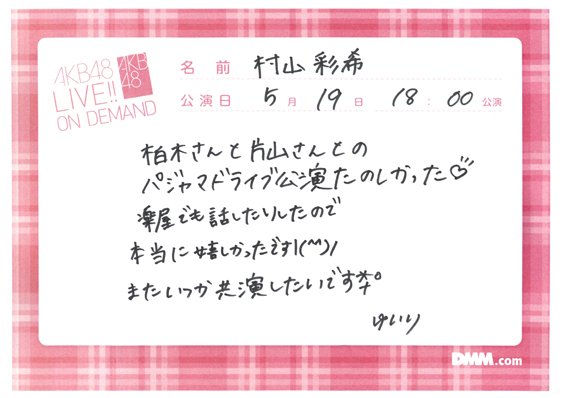 AKB48
LIVE!!
ON DEMAND
AKB
48
名 前 村山 彩希
公演日 5月 19日 18:00 公演
柏木さんと片山さんとの
パジャマドライブ公演たのしかった♡
楽屋でも話したりしたので
本当に嬉しかったです!(^^)!
またいつか共演したいです
ゆいり
DMM.com